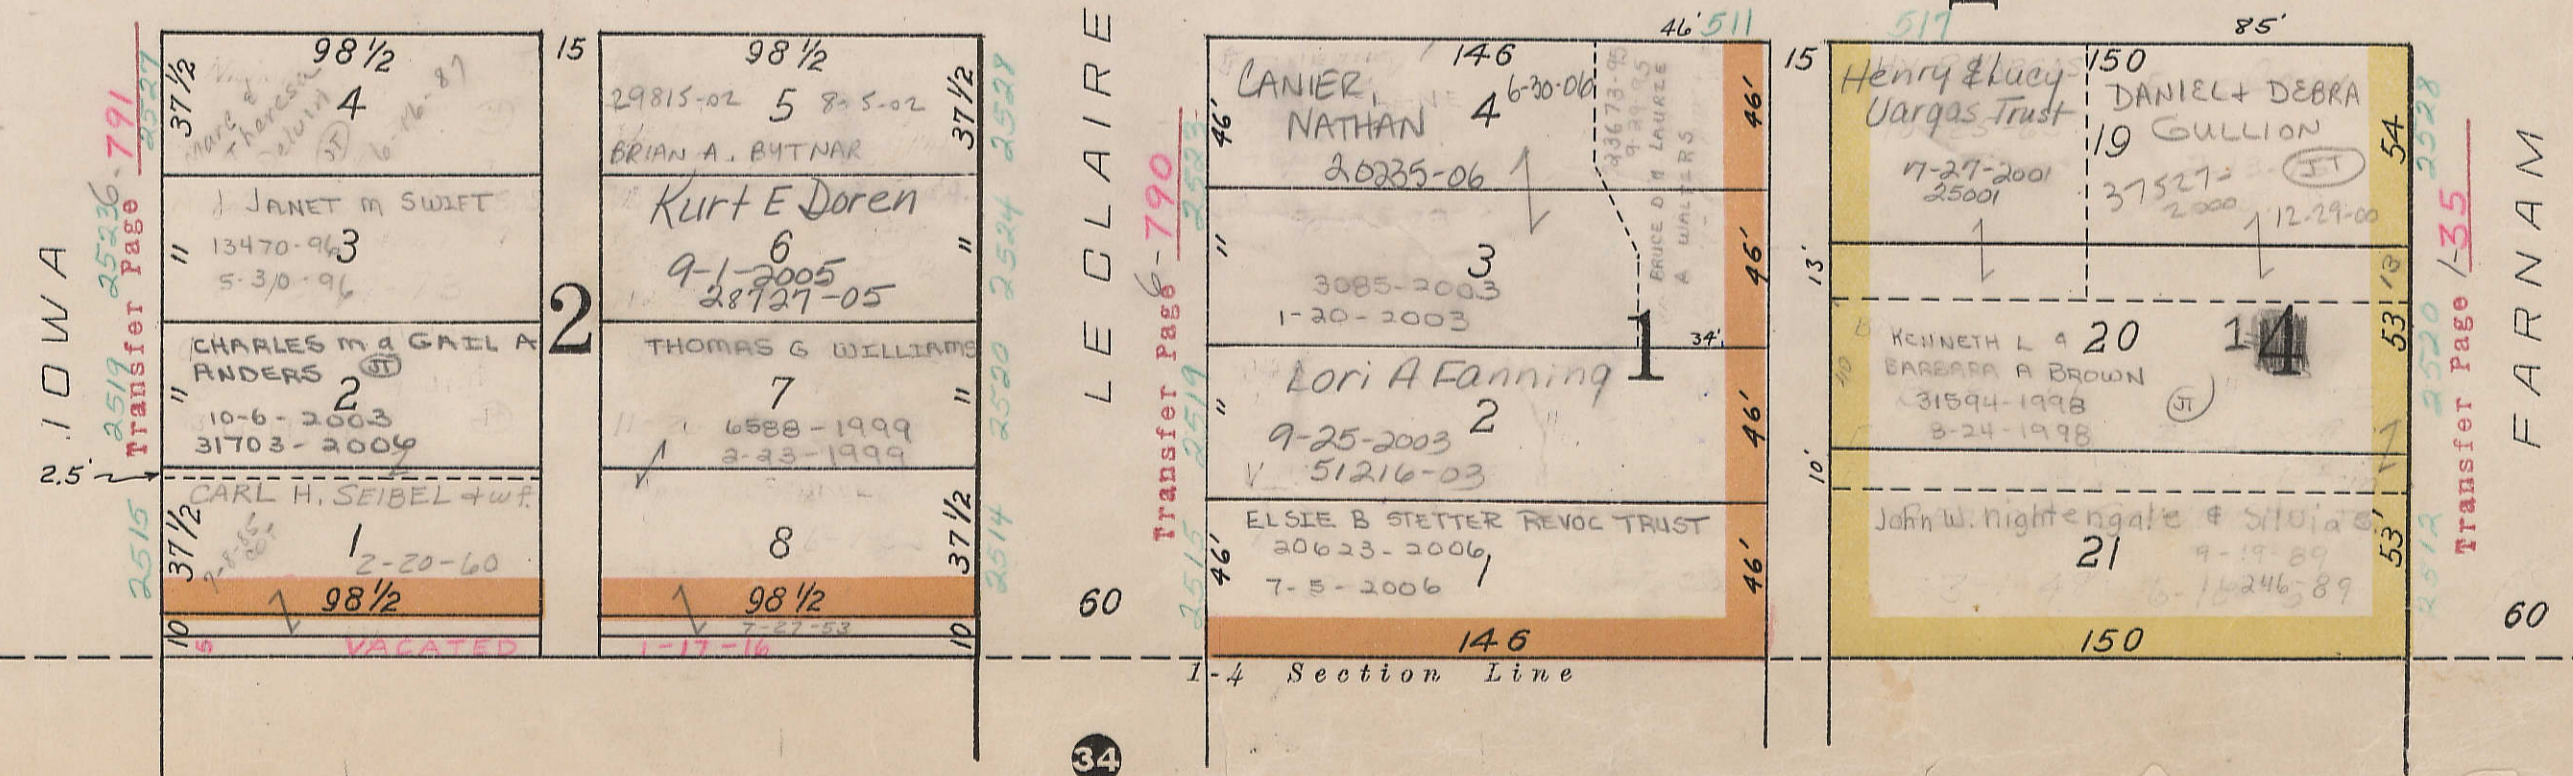 IOWA
Transfer Page 6-791
2527
2523
2519
2515
98 1/2
37 1/2
4
6-16-87
JT
JANET M SWIFT
3
13470-96
"
CHARLES M & GAIL A
ANDERS
JT
2
10-6-2003
31703-2006
"
2.5'
CARL H. SEIBEL & wf.
1
2-20-60
37 1/2
98 1/2
10
5
VACATED
15
2
98 1/2
37 1/2
29815-02
5
8-5-02
BRIAN A. BYTNAR
Kurt E Doren
6
9-1-2005
28727-05
"
THOMAS G WILLIAMS
7
6588-1999
2-23-1999
"
8
37 1/2
98 1/2
7-27-53
10
1-17-16
2528
2524
2520
2514
LE CLAIRE
60
34
Transfer Page 6-790
2523
2519
2515
46' 511
146
46'
CANIER,
NATHAN
4
6-30-06
20235-06
46'
23673-95
9-29-95
BRUCE D & LAURIE
A WALTERS
"
3
3085-2003
1-20-2003
46'
34'
1
Lori A Fanning
2
9-25-2003
51216-03
"
46'
ELSIE B STETTER REVOC TRUST
20623-2006
1
7-5-2006
46'
46'
146
1-4 Section Line
15
517
85'
150
Henry & Lucy
Vargas Trust
7-27-2001
25001
19
DANIEL & DEBRA
GULLION
JT
37527-
2000
12-29-00
54
13'
13'
KENNETH L &
20
BARBARA A BROWN
31594-1998
JT
8-24-1998
14
53'
10'
10'
John W. Nightengale & Silvia
21
9-19-89
246-89
53'
150
2528
2520
2512
Transfer Page 1-35
FARNAM
60